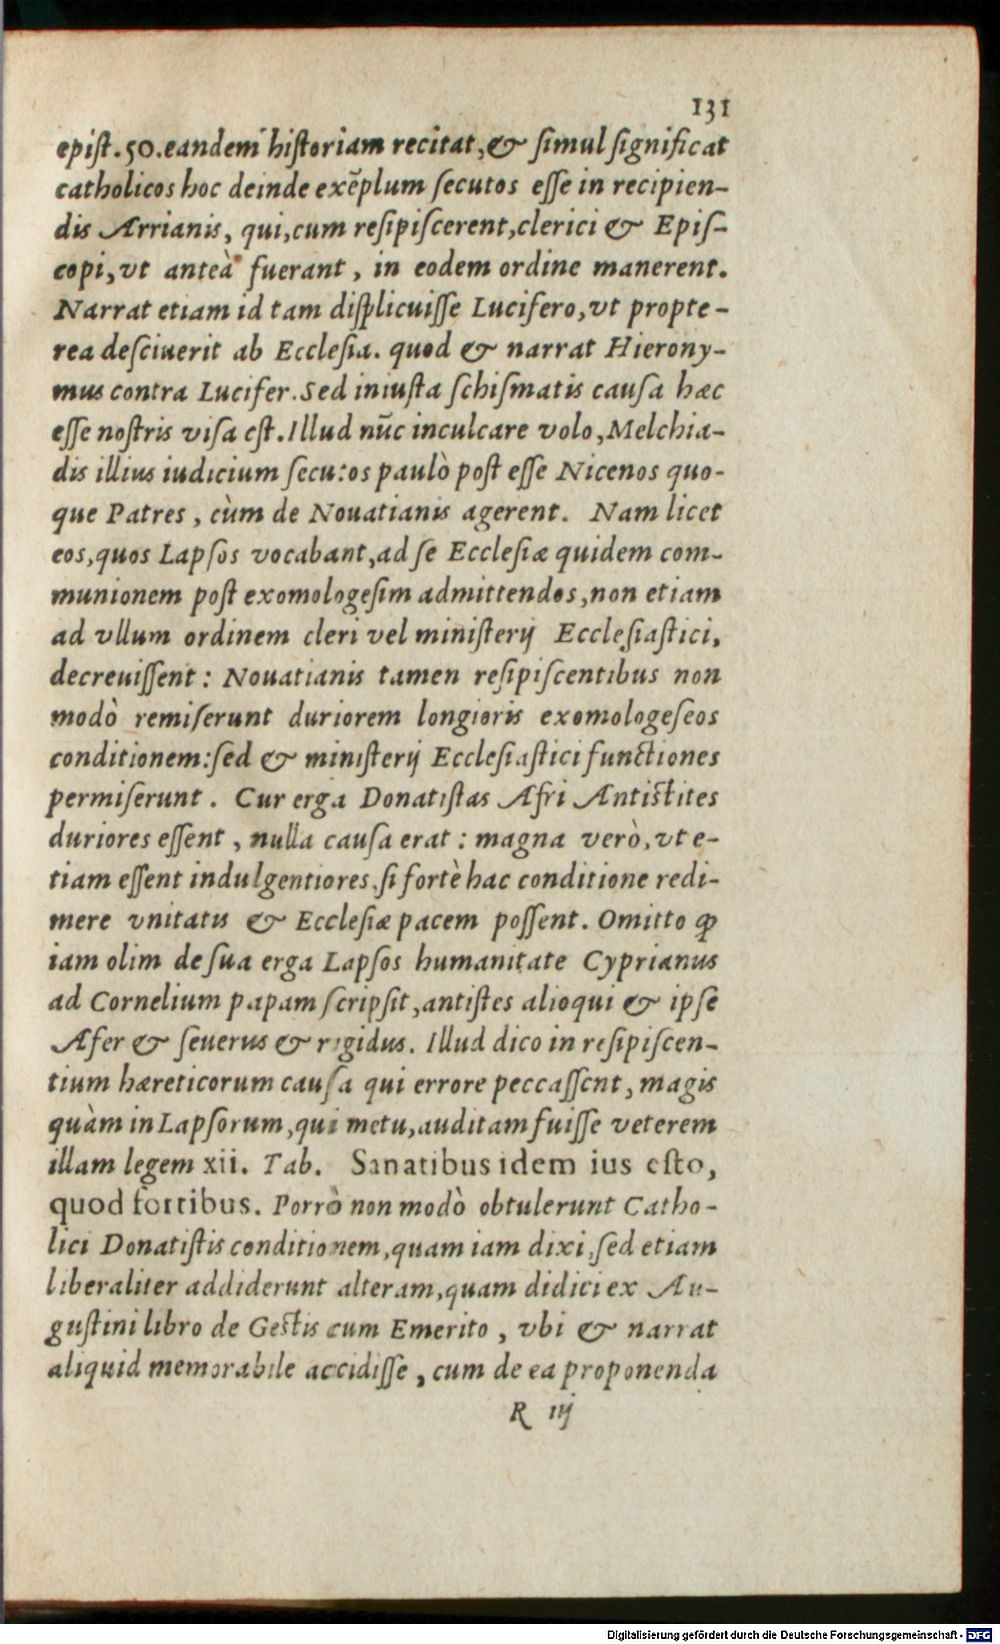 131
epiſt. 50. eandem hiſtoriam recitat, & ſimul ſignificat
catholicos hoc deinde exēplum ſecutos eſſe in recipien-
dis Arrianis, qui, cum reſipiſcerent, clerici & Epiſ-
copi, vt anteà fuerant, in eodem ordine manerent.
Narrat etiam id tam diſplicuiſſe Lucifero, vt propte-
rea deſciuerit ab Eccleſia. quod & narrat Hierony-
mus contra Lucifer. Sed iniuſta ſchiſmatis cauſa hæc
eſſe noſtris viſa eſt. Illud nūc inculcare volo, Melchia-
dis illius iudicium ſecutos paulò poſt eſſe Nicenos quo-
que Patres, cùm de Nouatianis agerent. Nam licet
eos, quos Lapſos vocabant, ad ſe Eccleſiæ quidem com-
munionem poſt exomologeſim admittendos, non etiam
ad vllum ordinem cleri vel miniſterij Eccleſiaſtici,
decreuiſſent: Nouatianis tamen reſipiſcentibus non
modò remiſerunt duriorem longioris exomologeſeos
conditionem: ſed & miniſterij Eccleſiaſtici functiones
permiſerunt. Cur erga Donatiſtas Afri Antiſtites
duriores eſſent, nulla cauſa erat: magna verò, vt e-
tiam eſſent indulgentiores, ſi fortè hac conditione redi-
mere vnitatis & Eccleſiæ pacem poſſent. Omitto ꝙ
iam olim de ſua erga Lapſos humanitate Cyprianus
ad Cornelium papam ſcripſit, antiſtes alioqui & ipſe
Afer & ſeuerus & rigidus. Illud dico in reſipiſcen-
tium hæreticorum cauſa qui errore peccaſſent, magis
quàm in Lapſorum, qui metu, auditam fuiſſe veterem
illam legem xii. Tab. Sanatibus idem ius eſto,
quod fortibus. Porrò non modò obtulerunt Catho-
lici Donatiſtis conditionem, quam iam dixi, ſed etiam
liberaliter addiderunt alteram, quam didici ex Au-
guſtini libro de Geſtis cum Emerito, vbi & narrat
aliquid memorabile accidiſſe, cum de ea proponenda
R iij
Digitalisierung gefördert durch die Deutsche Forschungsgemeinschaft - DFG